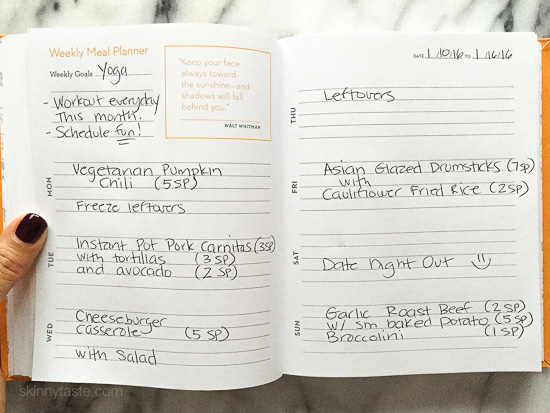 Weekly Meal Planner
Weekly Goals Yoga
- Workout everyday
This month.
- Schedule fun!
"Keep your face
always toward
the sunshine—and
shadows will fall
behind you."
WALT WHITMAN
MON
Vegetarian Pumpkin
Chili (5 SP)
Freeze leftovers
TUE
Instant Pot Pork Carnitas (3 SP)
with tortillas (3 SP)
and avocado (2 SP)
WED
Cheeseburger
casserole (5 SP)
with Salad
skinnytaste.com
DATE 1/10/16 TO 1/16/16
THU
Leftovers
FRI
Asian Glazed Drumsticks (7 SP)
with
Cauliflower Fried Rice (2 SP)
SAT
Date Night Out
SUN
Garlic Roast Beef (2 SP)
w/ sm baked potato (5 SP)
Broccolini (1 SP)